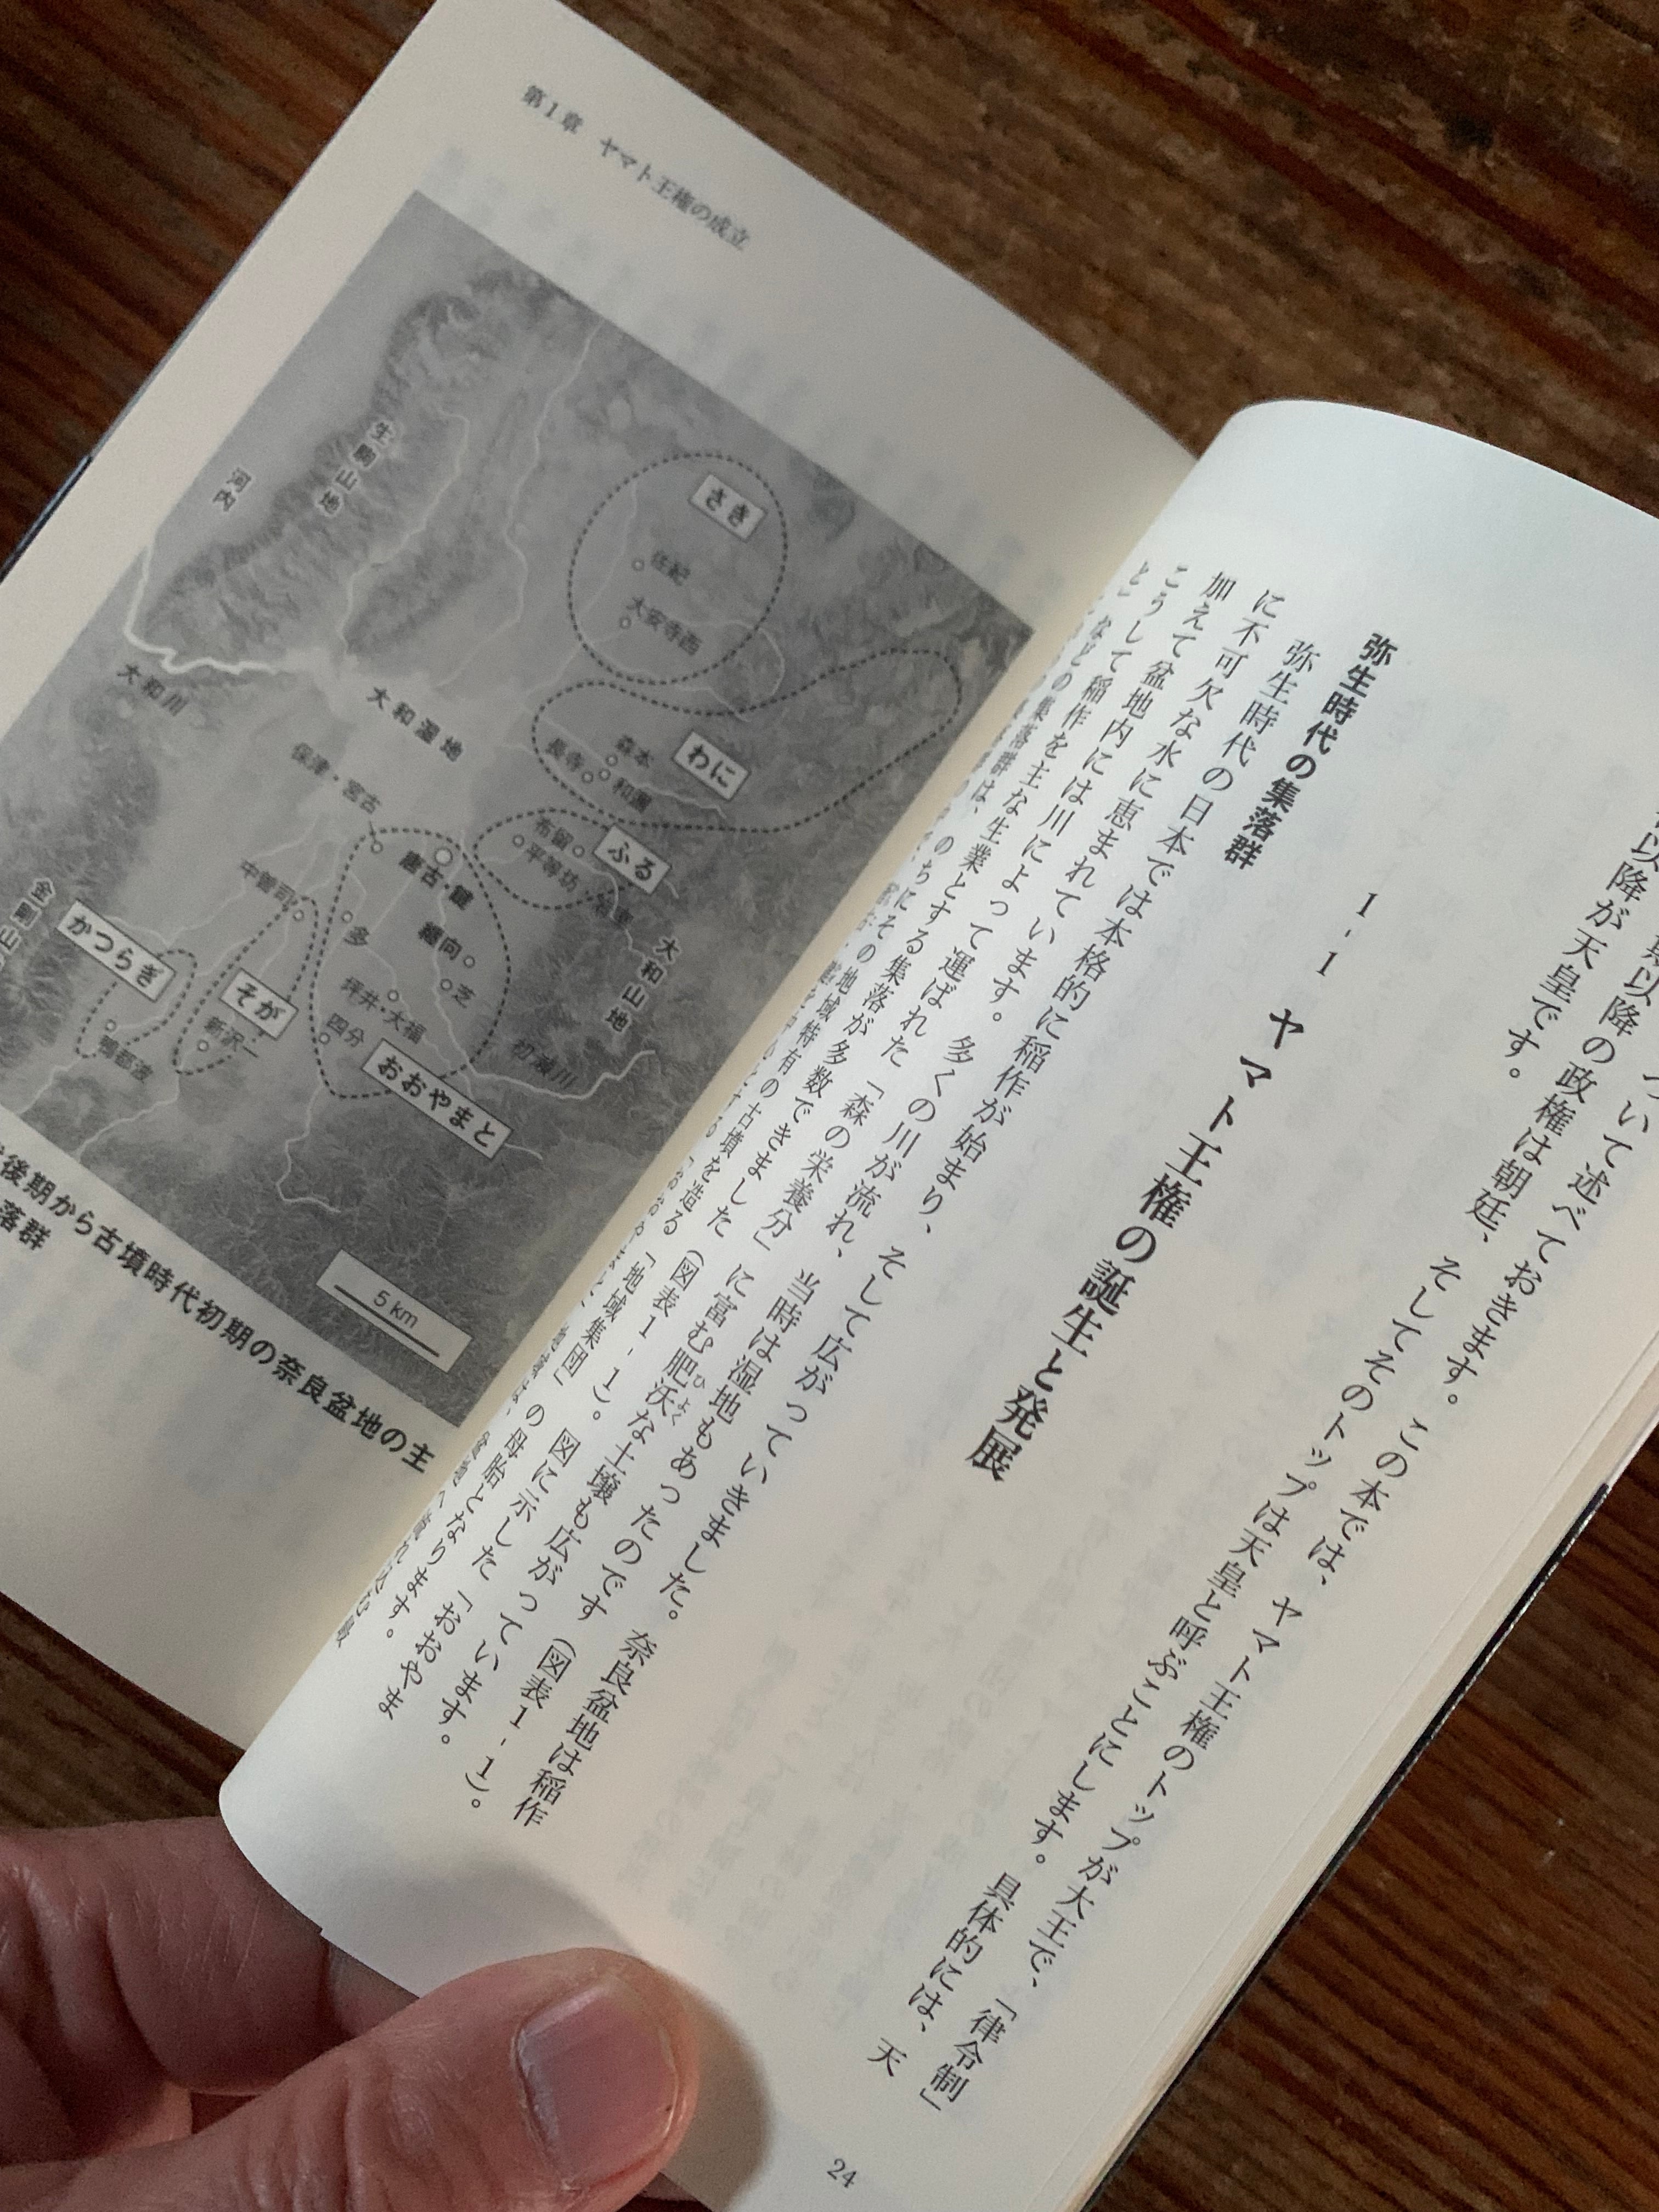 ついて述べておきます。この本では、ヤマト王権のトップが大王で、「律令制」
期以降の政権は朝廷、そしてそのトップは天皇と呼ぶことにします。具体的には、天
以降が天皇です。
1-1 ヤマト王権の誕生と発展
弥生時代の集落群
弥生時代の日本では本格的に稲作が始まり、そして広がっていきました。奈良盆地は稲作
に不可欠な水に恵まれています。多くの川が流れ、当時は湿地もあったのです(図表1-1)。
加えて盆地内には川によって運ばれた「森の栄養分」に富む肥沃な土壌も広がっています。
こうして稲作を主な生業とする集落が多数できました(図表1-1)。図に示した「おおやま
と」などの集落群は、のちにその地域特有の古墳を造る「地域集団」の母胎となります。
24
第1章 ヤマト王権の成立
生駒山地
河内
さき
佐紀
大安寺西
大和川
大和湿地
わに
森本
長寺
和爾
保津・宮古
ふる
布留
平等坊・岩室
唐古・鍵
中曽司
多
纒向
芝
大和山地
金剛山
かつらぎ
鴨都波
そが
新沢一
坪井・大福
四分
おおやまと
初瀬川
5km
後期から古墳時代初期の奈良盆地の主
落群